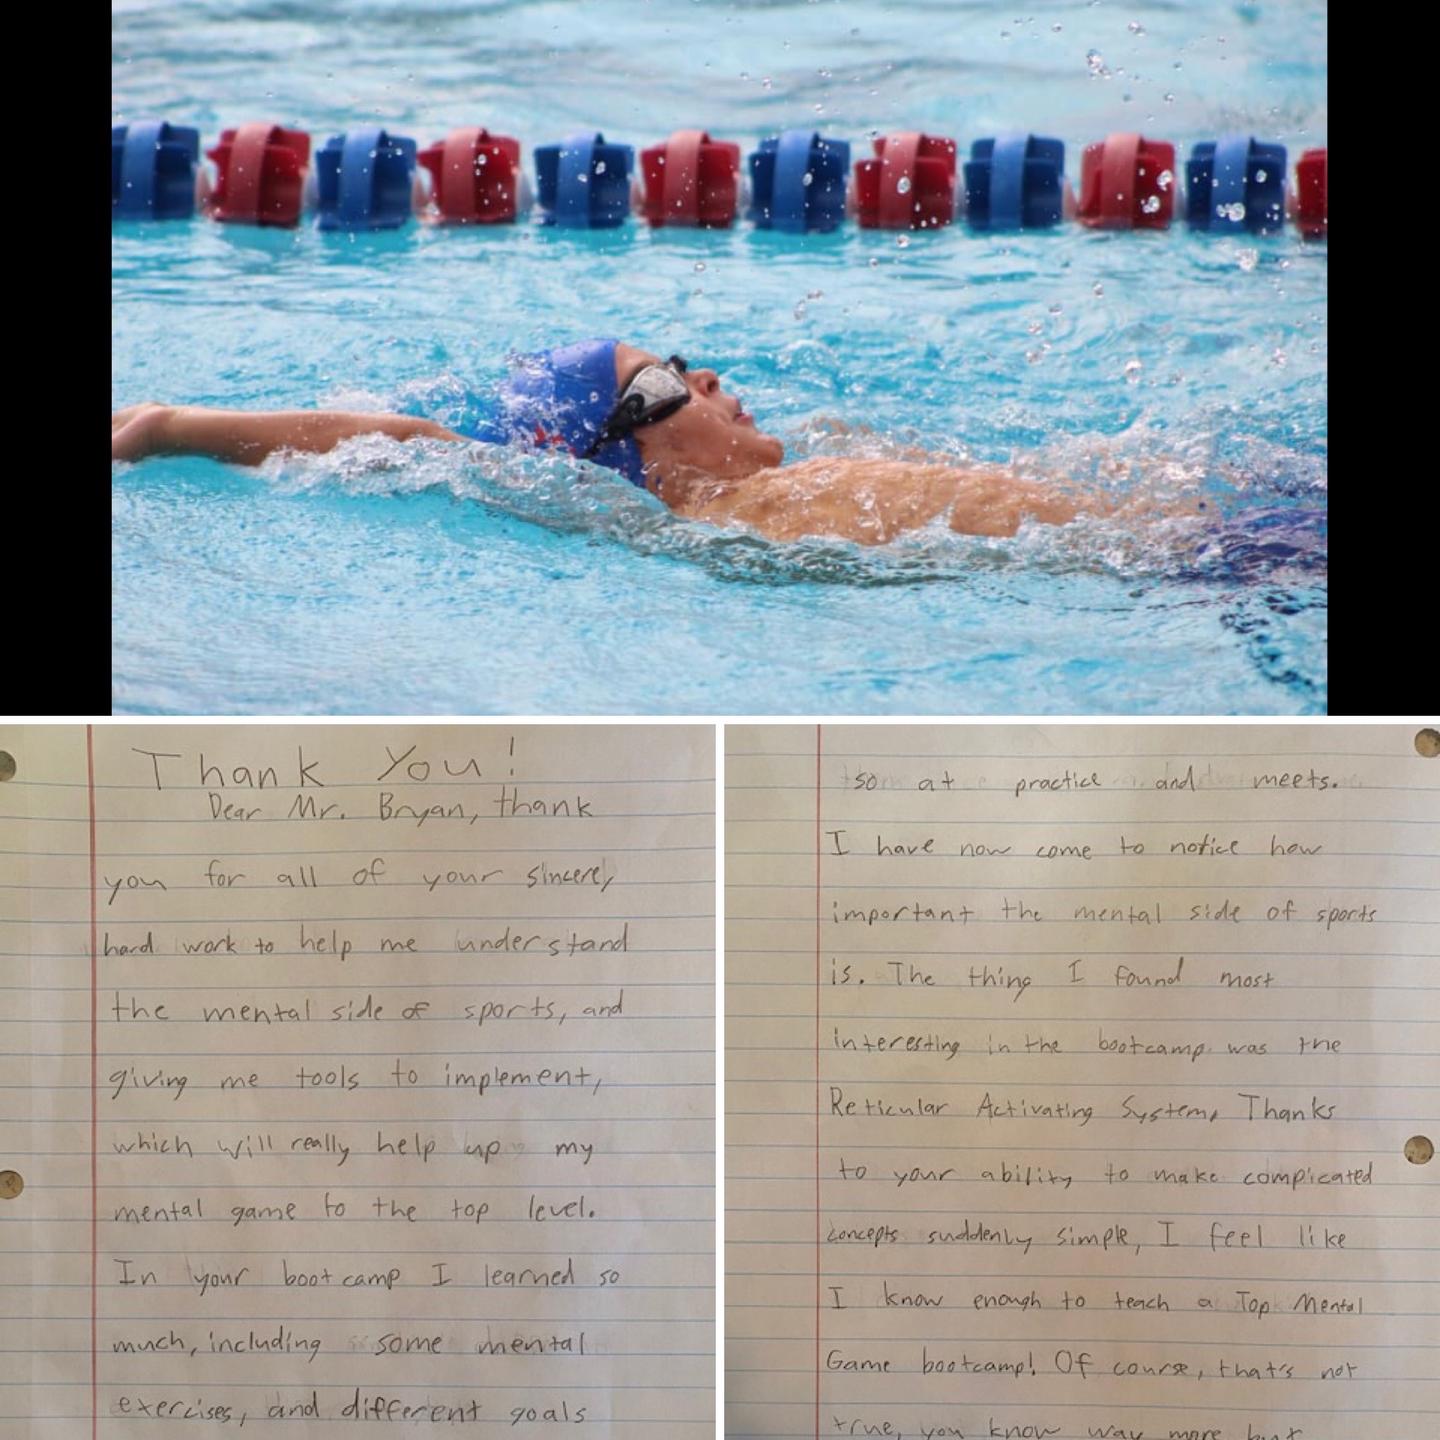 Thank You!
Dear Mr. Bryan, thank
you for all of your sincere,
hard work to help me understand
the mental side of sports, and
giving me tools to implement,
which will really help up my
mental game to the top level.
In your boot camp I learned so
much, including some mental
exercises, and different goals
so at practice and meets.
I have now come to notice how
important the mental side of sports
is. The thing I found most
interesting in the bootcamp was the
Reticular Activating System, Thanks
to your ability to make compicated
concepts suddenly simple, I feel like
I know enough to teach a Top Mental
Game bootcamp! Of course, that's not
true, you know way more but